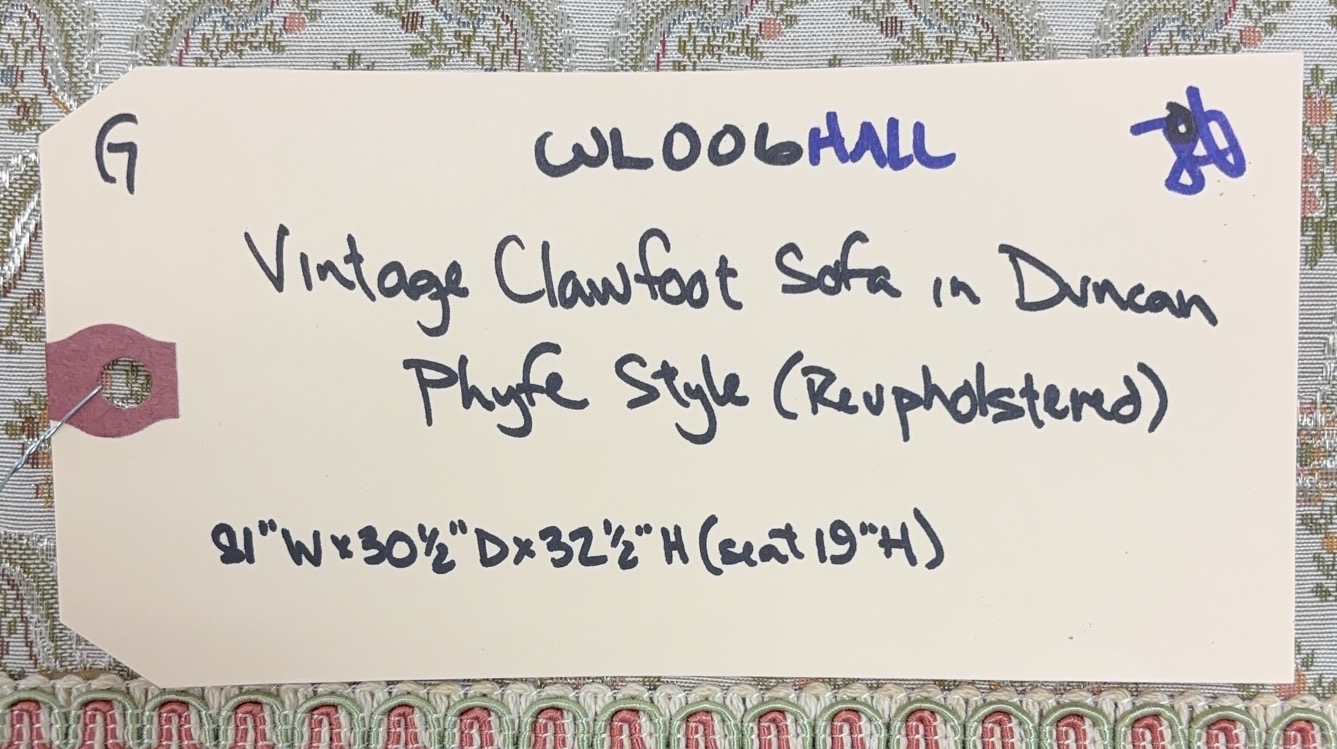 G CWL006HALL
Vintage Clawfoot Sofa in Duncan
Phyfe Style (Reupholstered)
81"W x 30½" D x 32½" H (seat 19"H)